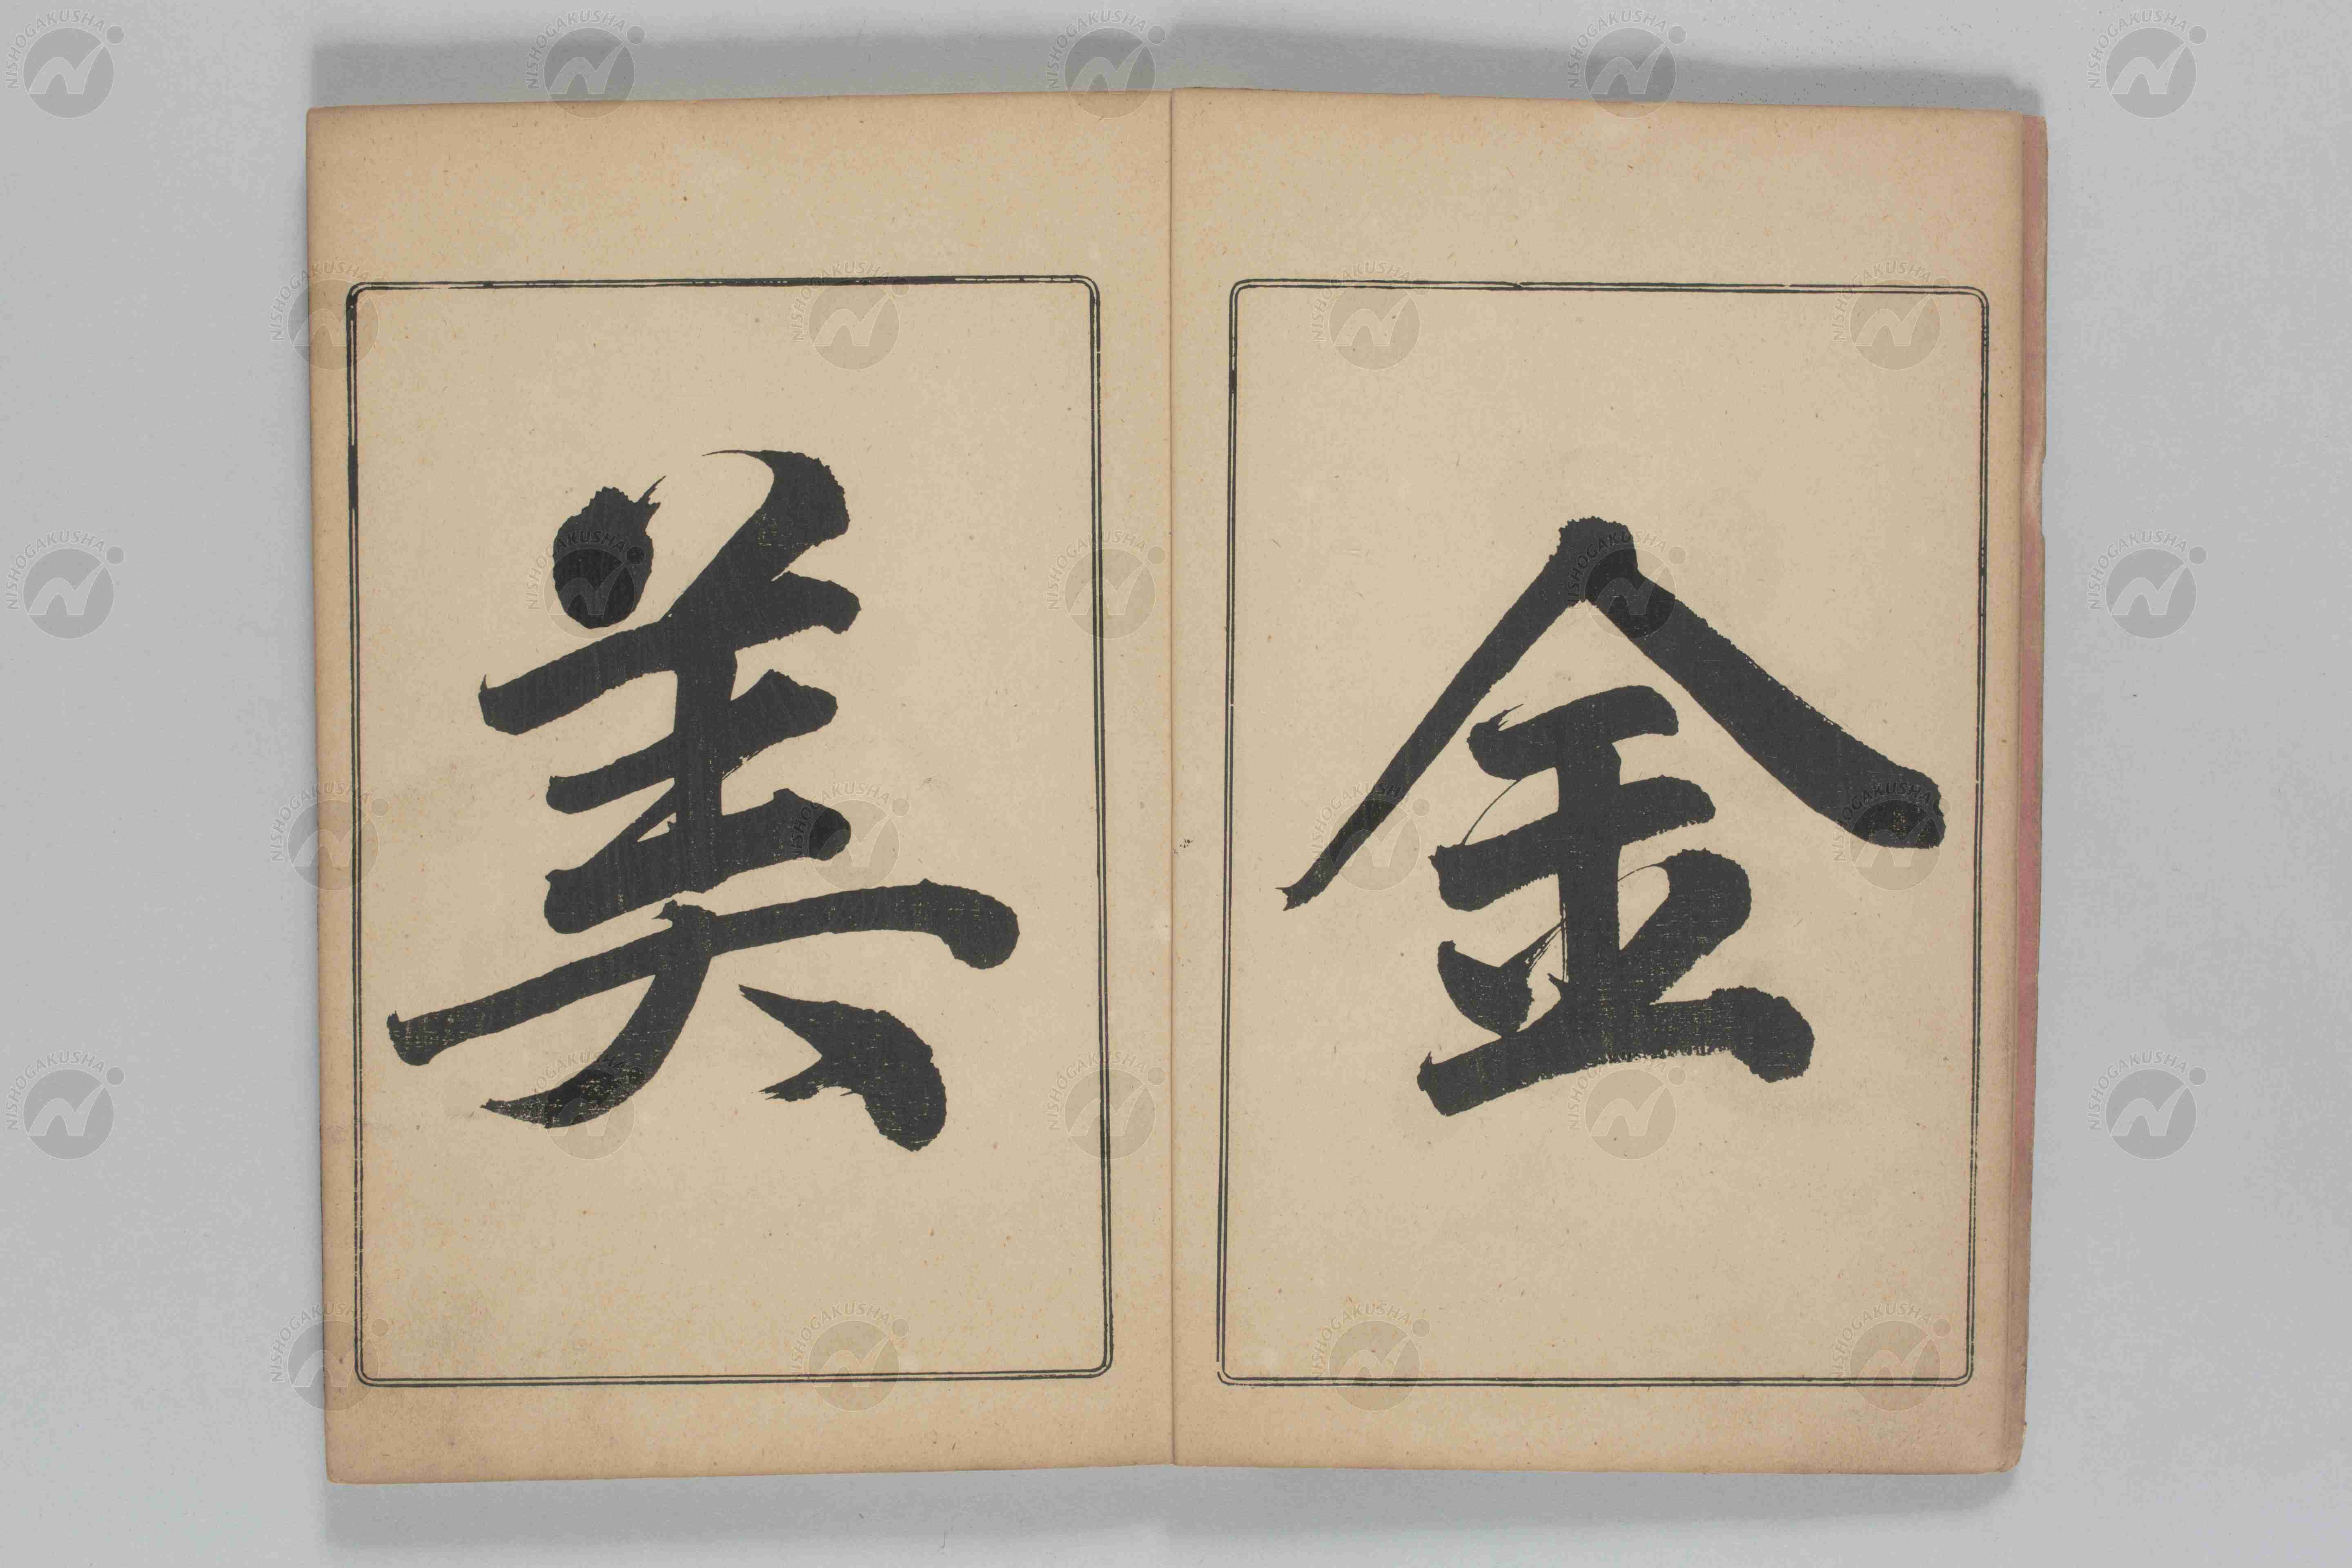 金
美
NISHOGAKUSHA